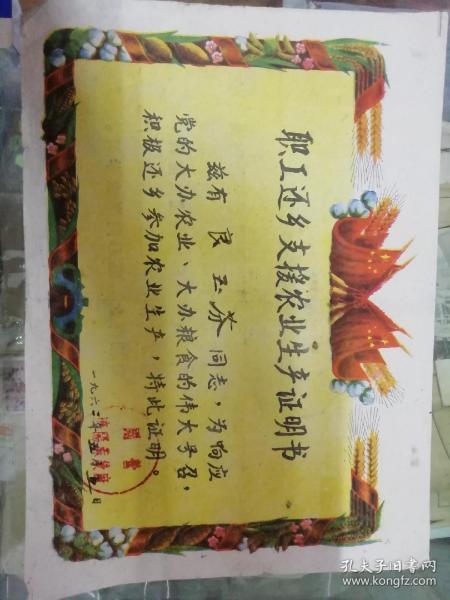 职工还乡支援农业生产证明书
兹有 良玉芬 同志，为响应
党的大办农业、大办粮食的伟大号召，
积极还乡参加农业生产，特此证明。
一九六二年 月 日
孔夫子旧书网
www.kongfz.com